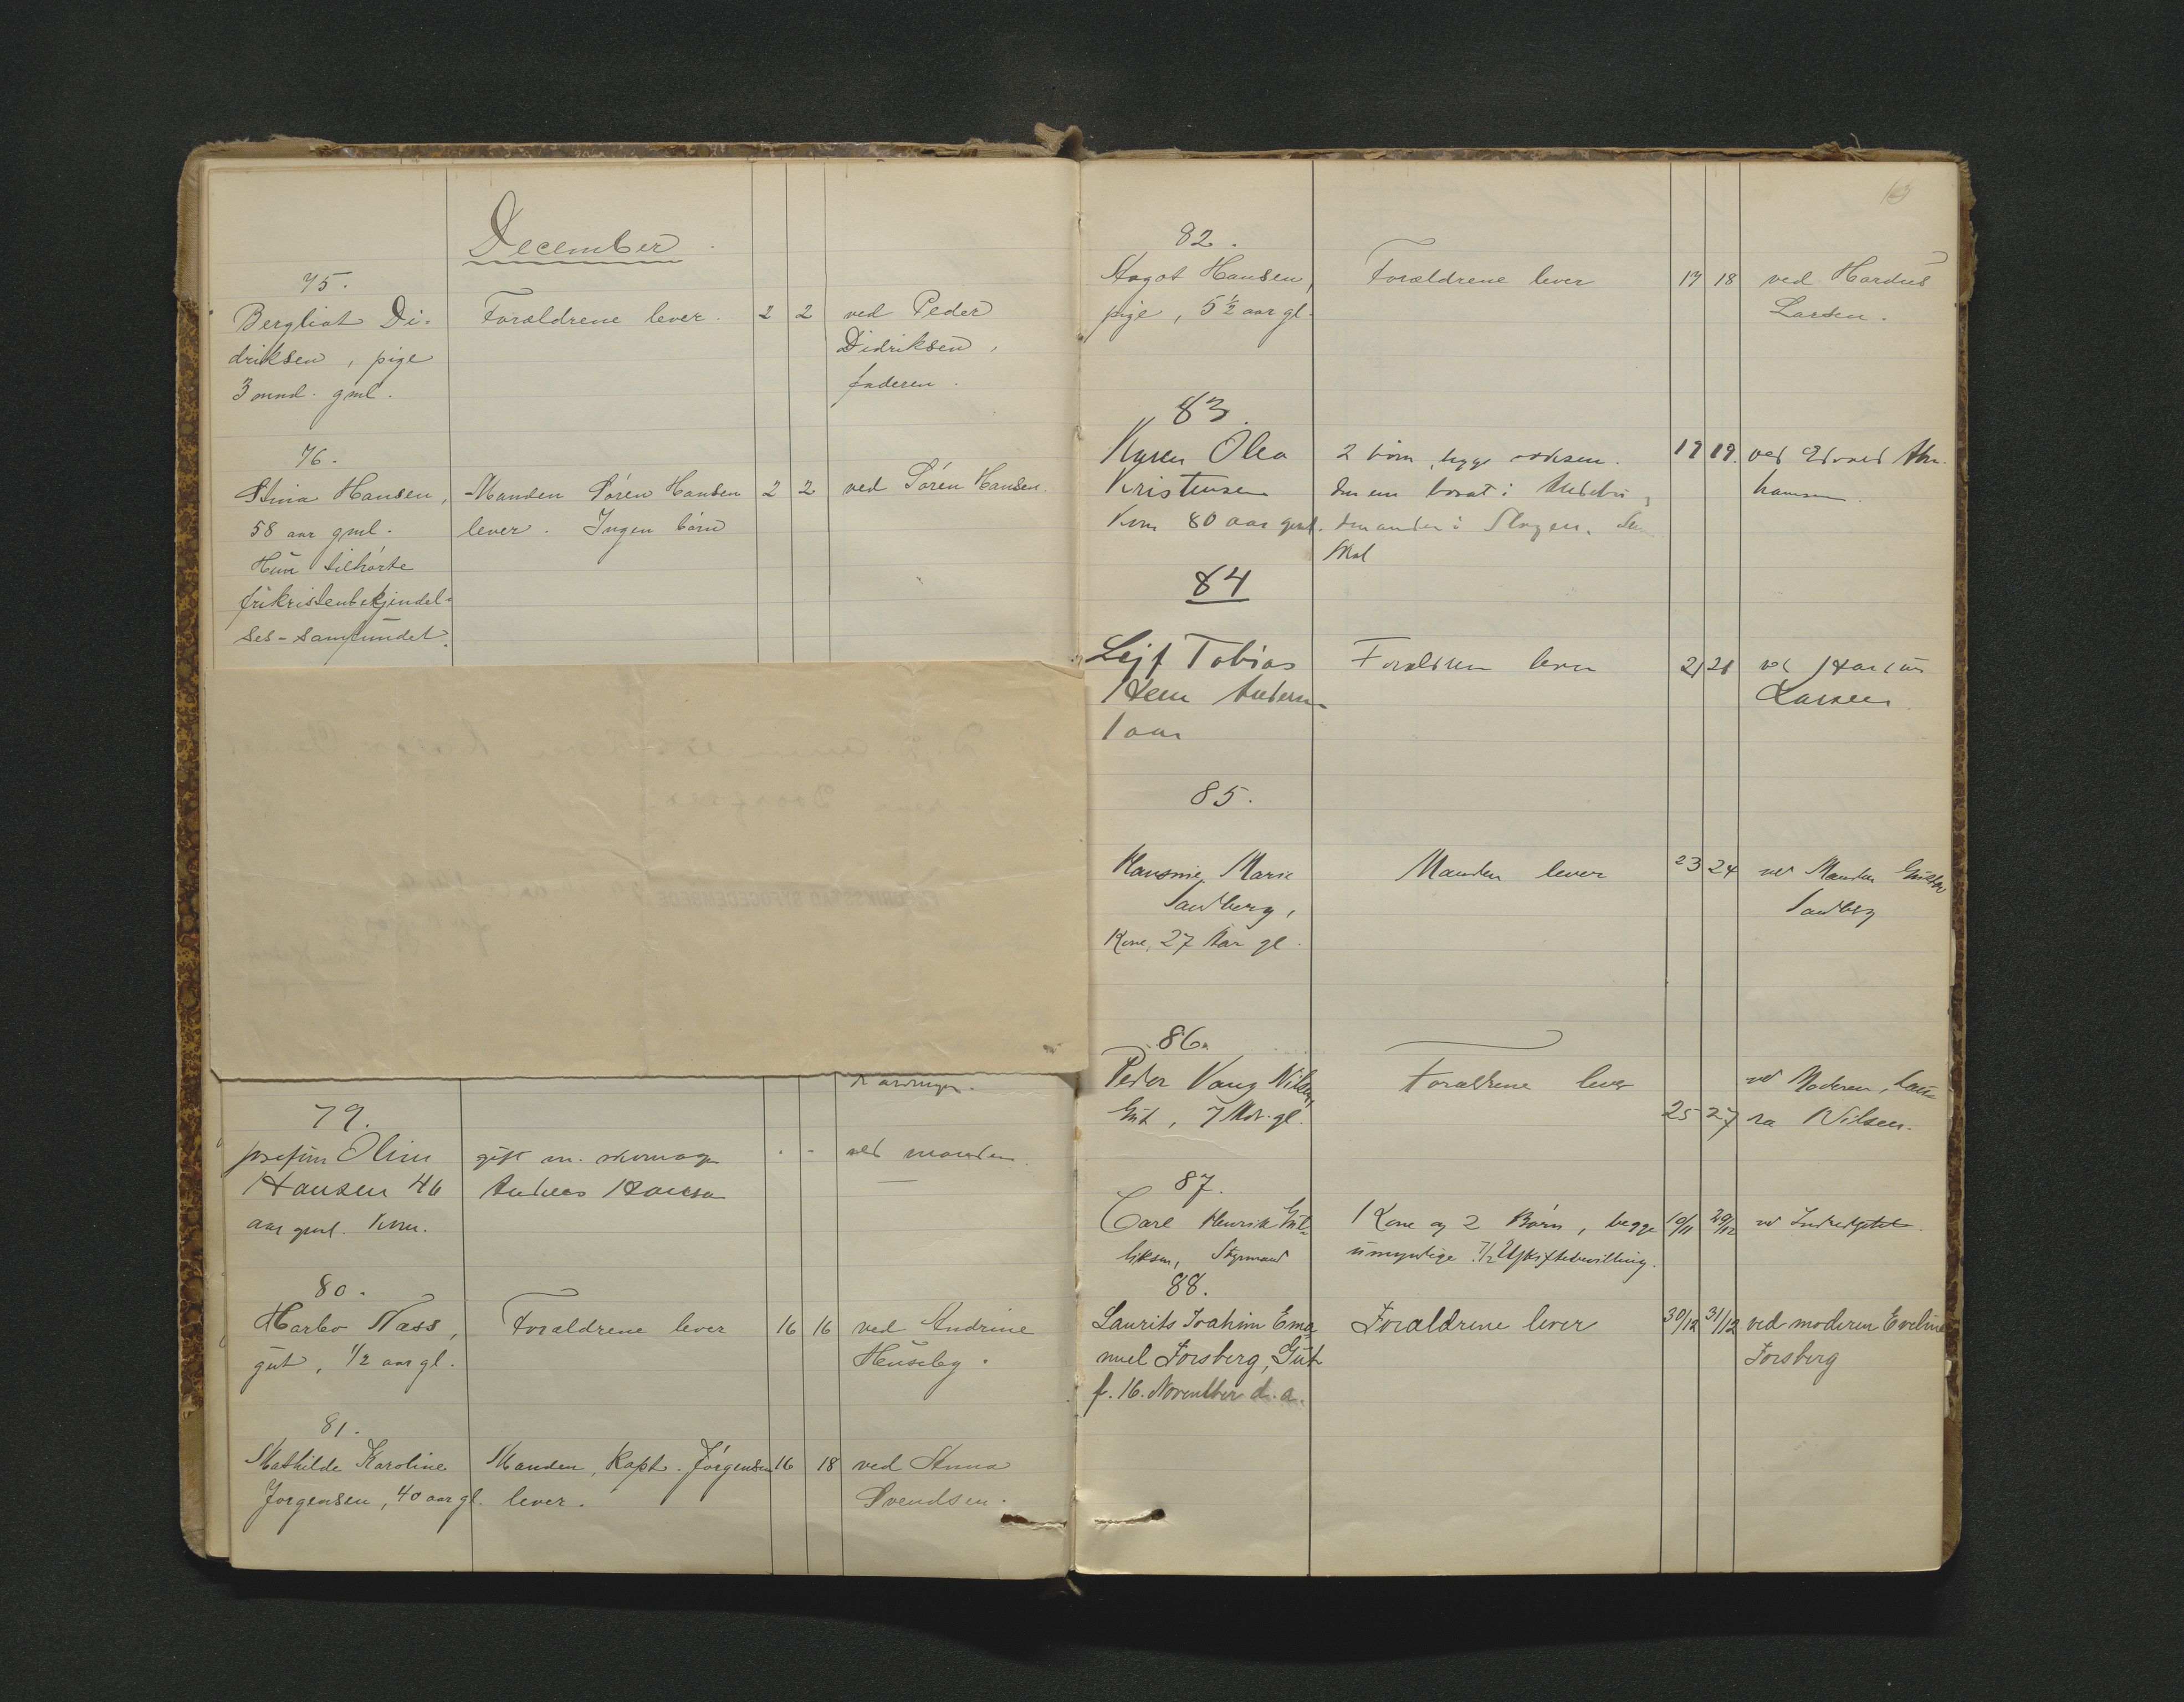 December
75.
Bergliot Di-
driksen, pige
3 mnd. gml.
Forældrene lever.
2 2
ved Peder
Didriksen,
faderen.
76.
Stina Hansen,
58 aar gml.
Hun tilhørte
frikristenbekjendel-
ses-samfundet.
Manden Søren Hansen
lever. Ingen børn
2 2
ved Søren Hansen.
FREDRIKSSTAD BYFOGEDEMBEDE
79.
Josefine Oline
Hansen 46
aar gml. Kone.
gift m. skomager
Anders Hansen
ved manden.
80.
Harbo Næss,
gut, 1/2 aar gl.
Forældrene lever
16 16
ved Andrine
Huseby.
81.
Mathilde Karoline
Jørgensen, 40 aar gl.
Manden, Kapt. Jørgensen
lever.
16 18
ved Anna
Svendsen.
82.
Aagot Hansen,
pige, 5 1/2 aar gl.
Forældrene lever
17 18
ved Hardus
Larsen.
83.
Karen Olea
Kristensen
Kone 80 aar gml.
2 børn, begge voksen.
den ene bosat i
den anden i Slagen.
19 19.
ved Edvard Abra-
hamsen.
84
Lejf Tobias
Hem Andersen
1 aar
Forældrene lever
21 21
ved Hardus
Larsen.
85.
Hansine Marie
Sandberg,
Kone, 27 Aar gl.
Manden lever
23 24
ved Manden Gustav
Sandberg
86.
Peder Vang Nilsen,
Gut, 7 Md. gl.
Forældrene lever
25 27
ved Moderen, Lau-
ra Nilsen.
87.
Carl Henrik Gut-
liksen, Styrmand
Kone og 2 Børn, begge
umyndige. 7/2 Uskiftebevilling.
19/11 29/12
ved
88.
Laurits Joahim Ema
nuel Forsberg, Gut
f. 16. November d. a.
Forældrene lever
30/12 31/12
ved moderen Eveline
Forsberg